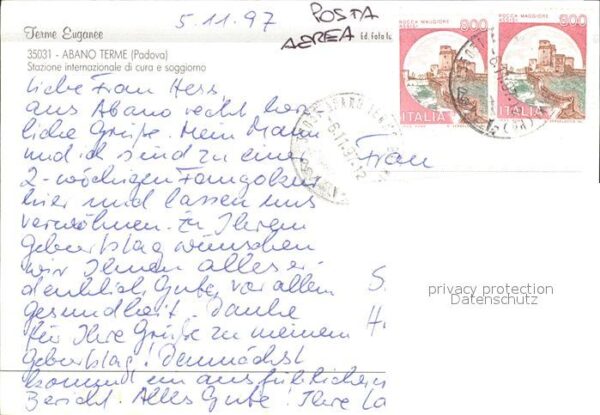 5.11.97
POSTA
AEREA
Terme Euganee
35031 - ABANO TERME (Padova)
Stazione internazionale di cura e soggiorno
Ed. Foto
ROCCA MAGGIORE
800
ITALIA
ROCCA MAGGIORE
800
ITALIA
Liebe Frau Hess,
aus Abano recht herz
liche Grüße. Mein Mann
und ich sind zu einer
2-wöchigen Fangokur
hier und lassen uns
verwöhnen. Zu Ihrem
Geburtstag wünschen
wir Ihnen alles er-
denklich Gute, vor allem
Gesundheit. Danke
für Ihre Grüße zu meinem
Geburtstag! Demnächst
kommt ein ausführlicher
Bericht. Alles Gute! Ihre
Frau
S
H
privacy protection
Datenschutz